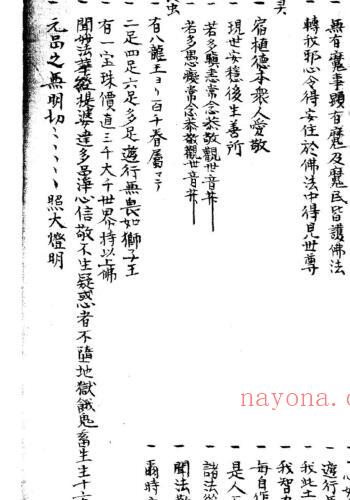 一 無有魔事雖有魔及魔民皆護佛法
一 轉我邪心令得安住於佛法中得見世尊
一 宿植德本衆人愛敬
一 現世安穏後生善所
一 若多瞋恚常念恭敬觀世音井
一 若多愚癡常念恭敬觀世音井
一 有八龍王ヨリ百千眷属マテ
一 二足四足六足多足遊行無畏如獅子王
一 有一宝珠價直三千大千世界持以上佛
一 聞妙法華經提婆達多品浄心信敬不生疑惑者不墮地獄餓鬼畜生生十方
一 元品之無明切ミミミミミ照大燈明
一
遊行
一 我此土
一 我智力
一 每自作
一 是人
一 諸法從
一 聞法
一 爾時
nayona.cn